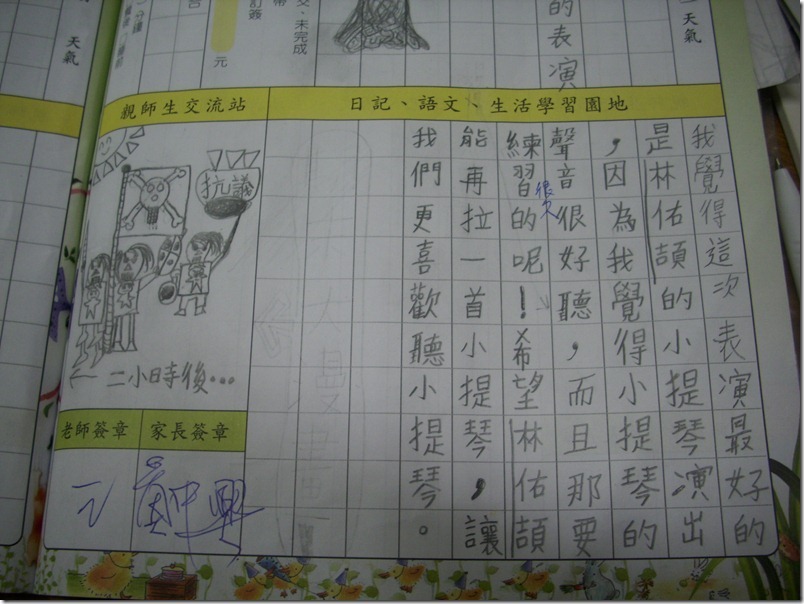 天氣
天氣
的表演
交、未完成
元
天氣
親師生交流站
日記、語文、生活學習園地
我覺得這次表演最好的
是林佑頡的小提琴演出
，因為我覺得小提琴的
聲音很好聽，而且那要
練習很久的呢！希望林佑頡
能再拉一首小提琴，讓
我們更喜歡聽小提琴。
抗議
二小時後…
老師簽章
家長簽章